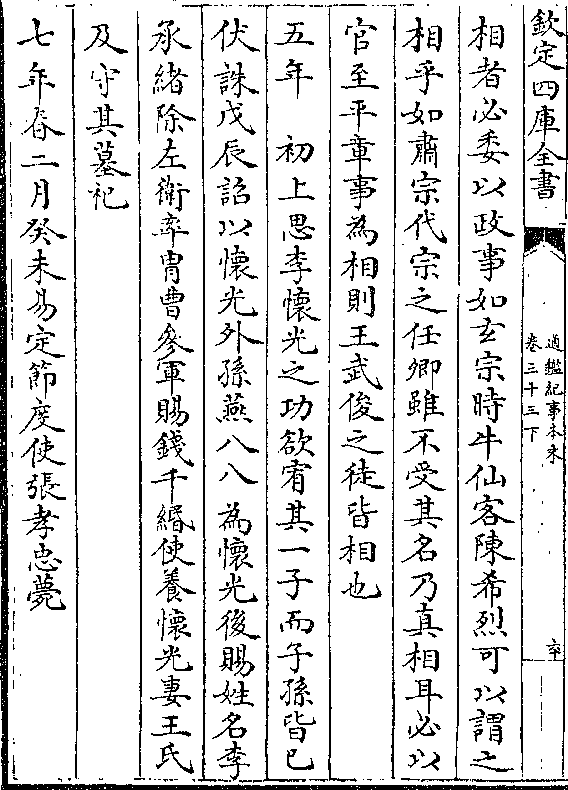 欽定四庫全書
通鑑紀事本末
卷三十三下
相者必委以政事如玄宗時牛仙客陳希烈可以謂之
相乎如肅宗代宗之任卿雖不受其名乃真相耳必以
官至平章事為相則王武俊之徒皆相也
五年 初上思李懷光之功欲宥其一子而子孫皆已
伏誅戊辰詔以懷光外孫燕八八為懷光後賜姓名李
承緒除左衛率胄曹參軍賜錢千緡使養懷光妻王氏
及守其墓祀
七年春二月癸未易定節度使張孝忠薨